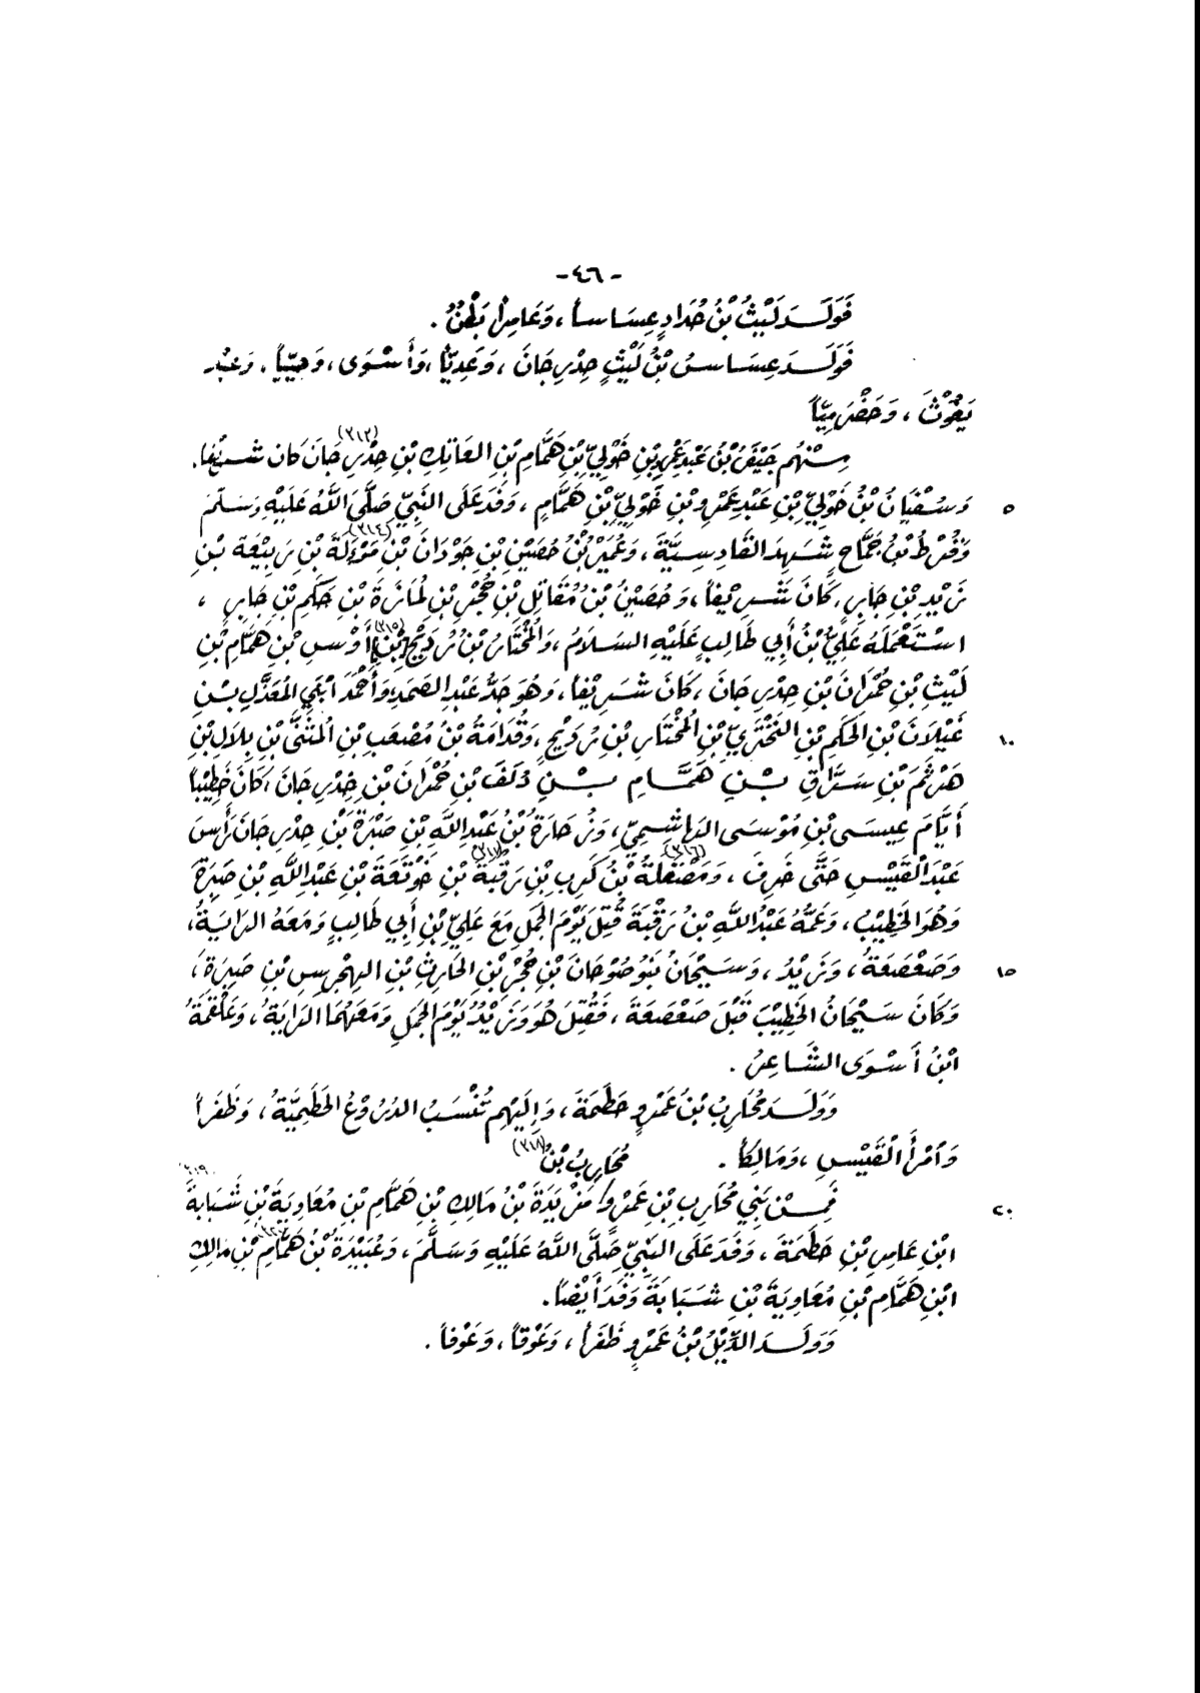 -٤٦-
فَوَلَدَ لَيْثُ بْنُ حُدَادٍ عِسَاساً، وَعَامِراً بَطْنٌ.
فَوَلَدَ عِسَاسُ بْنُ لَيْثٍ حِدْرِجَانَ، وَعَدِيّاً، وَأَسْوَى، وَحِيَيّاً، وَعَبْدَ
يَغُوْثَ، وَحَضْرَمِيّاً
مِنْهُم جَيْفَرُ بْنُ عَبْدِ عَمْرِو بْنِ خَوْلِيِّ بْنِ هَمَّامِ بْنِ العَاتِكِ بْنِ حِدْرِجَانَ (٣١٣) كَانَ شَرِيْفاً.
٥ وَسُفْيَانُ بْنُ خَوْلِيِّ بْنِ عَبْدِ عَمْرِو بْنِ خَوْلِيِّ بْنِ هَمَّامٍ، وَفَدَ عَلَى النَّبِيِّ صَلَّى اللَّهُ عَلَيْهِ وَسَلَّمَ
وَقُرْطُ بْنُ جَمَّاحٍ شَهِدَ القَادِسِيَّةَ، وَعُمَيْرُ بْنُ حُصَيْنِ بْنِ جَوْدَانَ (٣١٤) بْنِ مَوْءَلَةَ بْنِ رَبِيْعَةَ بْنِ
زَيْدِ بْنِ جَابِرٍ، كَانَ شَرِيْفاً، وَحُصَيْنُ بْنُ مُقَاتِلِ بْنِ حُجْرِ بْنِ لُمَازَةَ بْنِ حَكَمِ بْنِ جَابِرٍ،
اسْتَعْمَلَهُ عَلِيُّ بْنُ أَبِي طَالِبٍ عَلَيْهِ السَلاَمُ، وَالمُخْتَارُ بْنُ رُدَيْحِ (٣١٥) بْنِ أَوْسِ بْنِ هَمَّامِ بْنِ
لَيْثِ بْنِ حُمْرَانَ بْنِ حِدْرِجَانَ، كَانَ شَرِيْفاً، وَهُوَ جَدُّ عَبْدِ الصَمَدِ وَأَحْمَدَ ابْنَي المُعَذَّلِ بْنِ
١٠ غَيْلاَنَ بْنِ الحَكَمِ بْنِ البَخْتَرِيِّ بْنِ المُخْتَارِ بْنِ رُدَيْحٍ، وَقُدَامَةُ بْنُ مُصْعَبِ بْنِ المُثَنَّى بْنِ بِلاَلِ بْنِ
هَرْثَمَ بْنِ سَرَّاقِ بْنِ هَمَّامِ بْنِ دُلَفَ بْنِ حُمْرَانَ بْنِ حِدْرِجَانَ، كَانَ خَطِيْباً
أَيَّامَ عِيسَى بْنِ مُوْسَى الهَاشِمِيِّ، وَزُحَارَةُ بْنُ عَبْدِ اللَّهِ بْنِ صَبْرَةَ بْنِ حِدْرِجَانَ رَأَسَ
عَبْدَ القَيْسِ حَتَّى خَرِفَ، وَمَصْقَلَةُ (٣١٦) بْنُ كَرِبِ بْنِ رَقَبَةَ (٣١٧) بْنِ خَوْتَعَةَ بْنِ عَبْدِ اللَّهِ بْنِ صَبِرَةَ
وَهُوَ الخَطِيْبُ، وَعَمُّهُ عَبْدُ اللَّهِ بْنُ رَقَبَةَ قُتِلَ يَوْمَ الجَمَلِ مَعَ عَلِيِّ بْنِ أَبِي طَالِبٍ وَمَعَهُ الرَايَةُ،
١٥ وَصَعْصَعَةُ، وَزَيْدُ، وَسَيْحَانُ بَنُو صُوْحَانَ بْنِ حُجْرِ بْنِ الحَارِثِ بْنِ الهِجْرِسِ بْنِ صَبِرَةَ،
وَكَانَ سَيْحَانُ الخَطِيْبَ قَبْلَ صَعْصَعَةَ، فَقُتِلَ هُوَ وَزَيْدُ يَوْمَ الجَمَلِ وَمَعَهُمَا الرَايَةُ، وَعَلْقَمَةُ
ابْنُ أَسْوَى الشَاعِرُ.
وَوَلَدَ مُحَارِبُ بْنُ عَمْرٍو حَطَمَةَ، وَإِلَيْهِم تُنْسَبُ الدُرُوْعُ الحَطَمِيَّةُ، وَظَفَراً
وَامْرَأَ القَيْسِ، وَمَالِكاً. مُحَارِبُ بْنُ (٣١٨)
٢٠ فَمِنْ بَنِي مُحَارِبِ بْنِ عَمْرٍو/ مَزِيْدَةَ بْنُ مَالِكِ بْنِ هَمَّامِ بْنِ مُعَاوِيَةَ بْنِ شَبَابَةَ (٣١٩)
ابْنِ عَامِرِ بْنِ حَطَمَةَ، وَفَدَ عَلَى النَبِيِّ صَلَّى اللَّهُ عَلَيْهِ وَسَلَّمَ، وَعُبَيْدَةُ بْنُ هَمَّامِ بْنِ مَالِكِ
ابْنِ هَمَّامِ بْنِ مُعَاوِيَةَ بْنِ شَبَابَةَ وَفَدَ أَيْضاً.
وَوَلَدَ الدِّيْلُ بْنُ عَمْرٍو ظَفَراً، وَعَوْقاً، وَعَوْفاً.